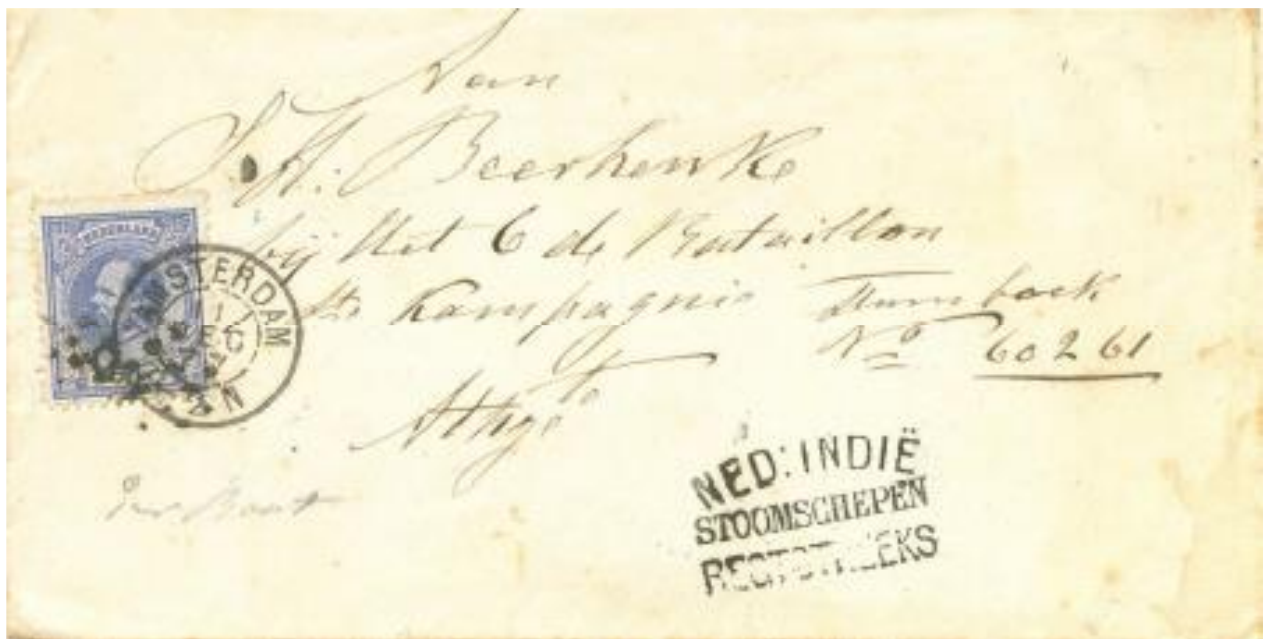 Aan
J. H. Beerhenke
bij Het 6 de Bataillon
Kampagnie Stamboek
No 60261
NEDERLAND
AMSTERDAM
NED: INDIË
STOOMSCHEPEN
RECHTSTREEKS